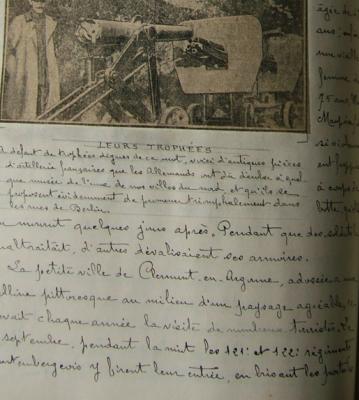 LEURS TROPHÉES
A défaut de trophées dignes de ce nom, voici d'antiques pièces
d'artillerie françaises que les Allemands ont dû dénicher à quel
que musée de l'une de nos villes du nord et qu'ils se
proposent évidemment de promener triomphalement dans
les rues de Berlin.
âgée de
ans;
une vieille
femme
75 ans
mourut quelques jours après. Pendant que des soldats
maltraitait, d'autres dévalisaient ses armoires.
La petite ville de Clermont-en-Argonne, adossée a une
colline pittoresque au milieu d'un paysage agréable,
chaque année la visite de nombreux touristes. Le
septembre, pendant la nuit les 121e et 122e régiments
wurtembergeois y firent leur entrée, en brisant les portes